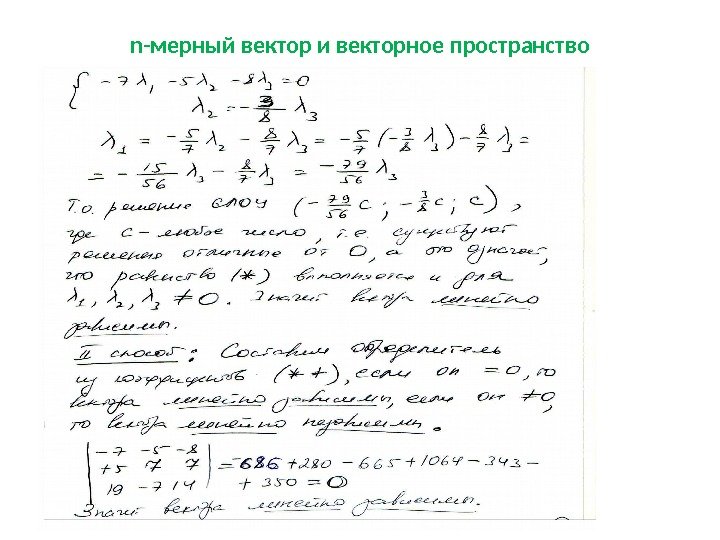 n-мерный вектор и векторное пространство
{ -7λ₁ -5λ₂ -8λ₃ = 0
λ₂ = -3/8 λ₃
λ₁ = -5/7 λ₂ - 8/7 λ₃ = -5/7 (-3/8 λ₃) - 8/7 λ₃ =
= - 15/56 λ₃ - 8/7 λ₃ = -79/56 λ₃
Т.о. решение СЛОУ (-79/56 c; -3/8 c; c),
где c - любое число, т.е. существуют
решения отличные от 0, а это означает,
что равенство (*) выполняется и для
λ₁, λ₂, λ₃ ≠ 0. Значит вектора линейно
зависимы.
II способ: Составим определитель
из коэффициентов (**), если он = 0, то
вектора линейно зависимы, если он ≠ 0,
то вектора линейно независимы.
| -7 -5 -8 |
| +5 7 7 | = -686 + 280 - 665 + 1064 - 343 -
| 19 -7 14 | + 350 = 0
Значит вектора линейно зависимы.